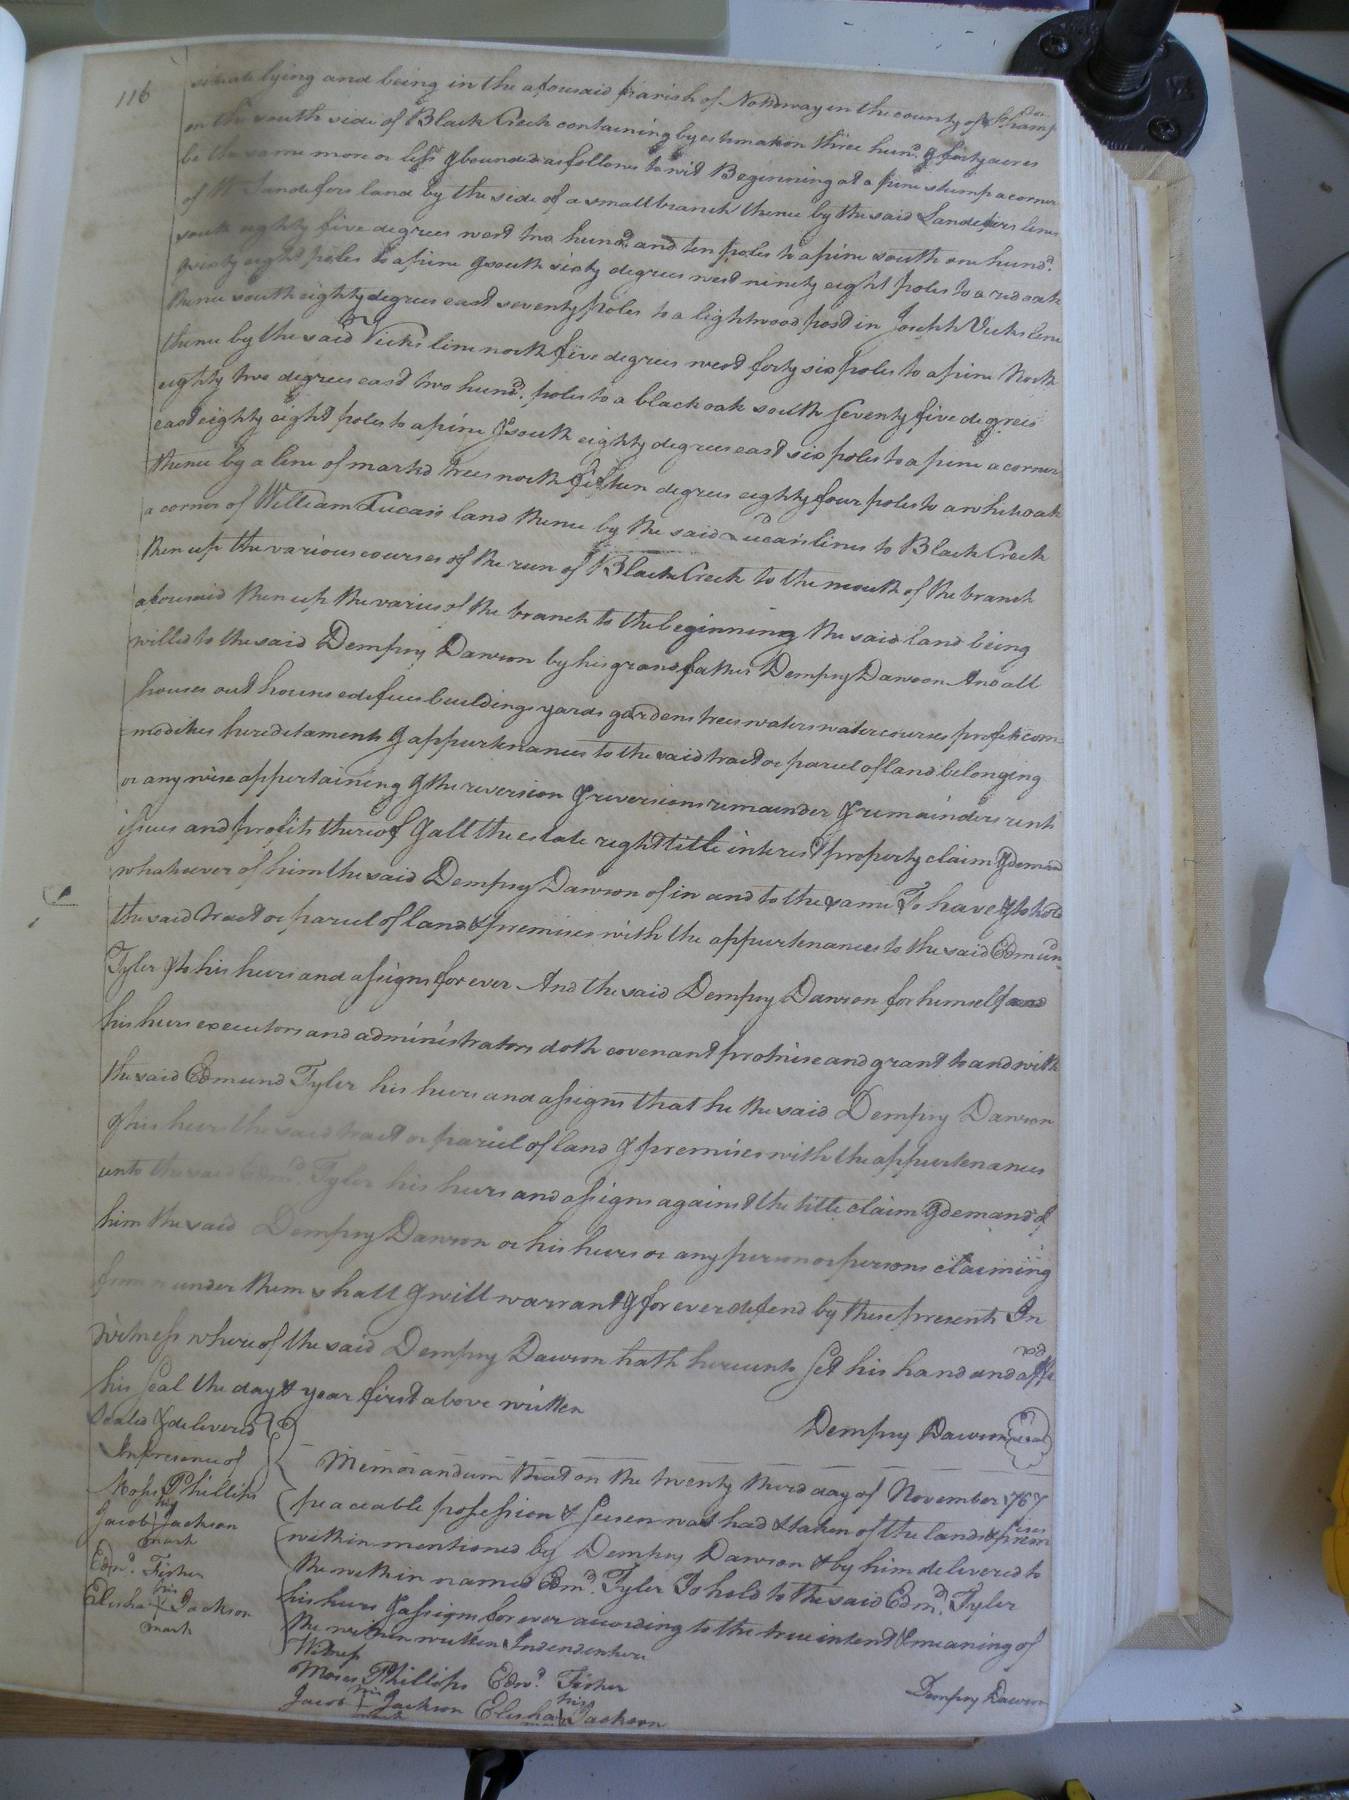 116
situate lying and being in the aforesaid parish of Nottoway in the county of Southamp
ton
on the south side of Black Creek containing by estimation three hund. & forty acres
be the same more or less & bounded as follows to wit Beginning at a pine stump a corner
of Wm Sandefers land by the side of a small branch thence by the said Sandefers lines
south eighty five degrees west two hund.d and ten poles to a pine south one hund.d
& sixty eight poles to a pine & south sixty degrees west ninety eight poles to a red oak
thence south eighty degrees east seventy poles to a lightwood post in Joseph Vicks line
thence by the said Vicks line north five degrees west forty six poles to a pine North
eighty two degrees east two hund.d poles to a black oak south seventy five degrees
east eighty eight poles to a pine & south eighty degrees east six poles to a pine a corner
thence by a line of markd trees north fifteen degrees eighty four poles to a white oak
a corner of William Lucas's land thence by the said Lucas's lines to Black Creek
then up the various courses of the run of Black Creek to the mouth of the branch
aforesaid then up the varius of the branch to the beginning the said land being
willed to the said Dempsy Dawson by his grandfather Dempsy Dawson And all
houses out houses edefices buildings yards gardens trees waters watercourses profits com=
=modities hereditaments & appurtenances to the said tract or parcel of land belonging
or any wise appertaining & the reversion & reversions remainder & remainders rents
issues and profits thereof & all the estate right title interest property claim & demand
whatsoever of him the said Dempsy Dawson of in and to the same To have & to hold
the said tract or parcel of land & premises with the appurtenances to the said Edmun
Tyler & to his heirs and assigns for ever And the said Dempsy Dawson for himself and
his heirs executors and administrators doth covenant promise and grant to and with
the said Edmund Tyler his heirs and assigns that he the said Dempsy Dawson
& his heirs the said tract or parcel of land & premises with the appurtenances
unto the said Edm.d Tyler his heirs and assigns against the title claim & demand of
him the said Dempsy Dawson or his heirs or any person or persons claiming
from or under them shall & will warrant & for ever defend by these presents In
Witness whereof the said Dempsy Dawson hath hereunto set his hand and affi
xd
his seal the day & year first above written
Sealed & delivered
In presence of
Moses Phillips
his
Jacob Jackson
mark
Edm.d Fisher
his
Elisha Jackson
mark
Dempsy Dawson seal
Memorandum that on the twenty third day of November 1767
peaceable possession & seisen was had & taken of the lands & prem
ises
within mentioned by Dempsy Dawson & by him delivered to
the within named Edm.d Tyler To hold to the said Edm.d Tyler
his heirs & assigns for ever according to the true intent & meaning of
the within written Indendenture
Witness
Moses Phillips Edm.d Fisher
his his
Jacob Jackson Elisha Jackson
mark mark
Dempsy Dawson